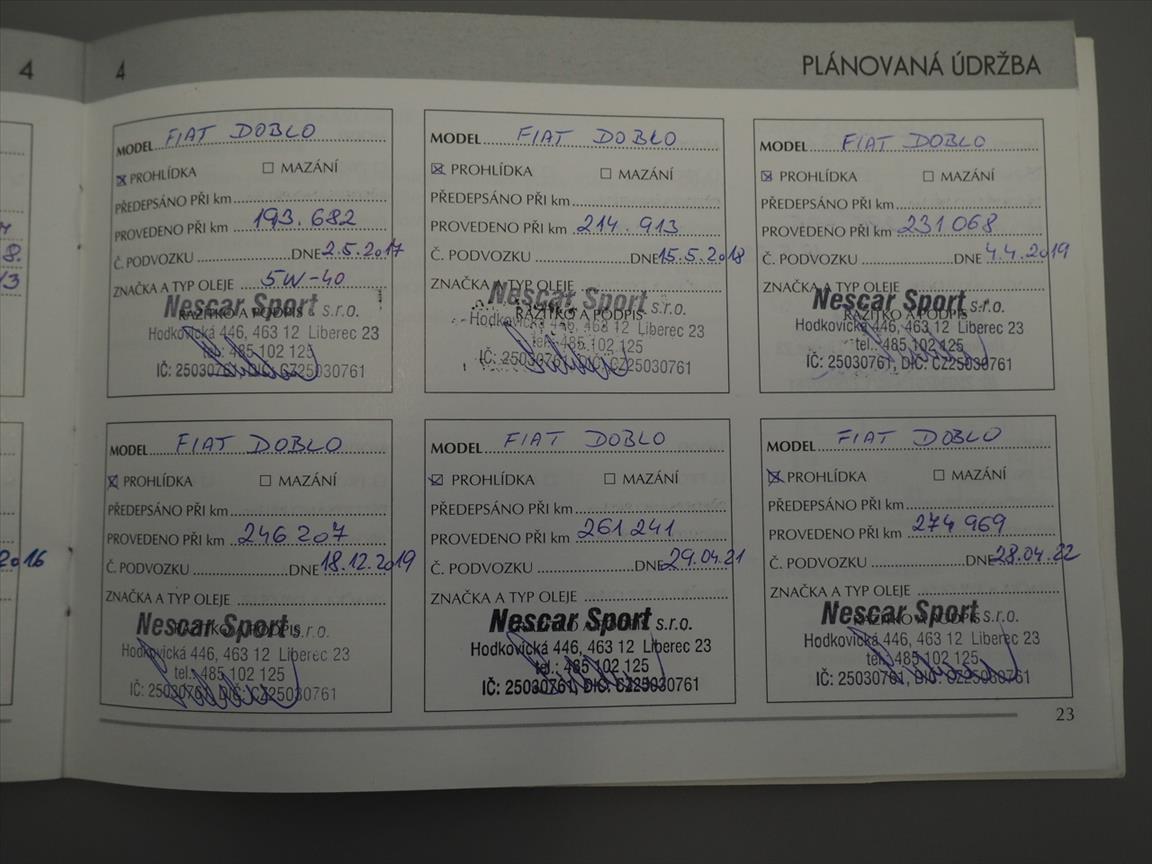 4
4
PLÁNOVANÁ ÚDRŽBA
8.
2016
MODEL FIAT DOBLO
☒ PROHLÍDKA ☐ MAZÁNÍ
PŘEDEPSÁNO PŘI km
PROVEDENO PŘI km 193.682
Č. PODVOZKU DNE 2.5.2017
ZNAČKA A TYP OLEJE 5W-40
Nescar Sport s.r.o.
RAZÍTKO A PODPIS
Hodkovická 446, 463 12 Liberec 23
tel.: 485 102 125
IČ: 25030761, DIČ: CZ25030761
MODEL FIAT DOBLO
☒ PROHLÍDKA ☐ MAZÁNÍ
PŘEDEPSÁNO PŘI km
PROVEDENO PŘI km 214.913
Č. PODVOZKU DNE 15.5.2018
ZNAČKA A TYP OLEJE
Nescar Sport s.r.o.
RAZÍTKO A PODPIS
Hodkovická 446, 463 12 Liberec 23
tel.: 485 102 125
IČ: 25030761, DIČ: CZ25030761
MODEL FIAT DOBLO
☒ PROHLÍDKA ☐ MAZÁNÍ
PŘEDEPSÁNO PŘI km
PROVEDENO PŘI km 231068
Č. PODVOZKU DNE 4.4.2019
ZNAČKA A TYP OLEJE
Nescar Sport s.r.o.
RAZÍTKO A PODPIS
Hodkovická 446, 463 12 Liberec 23
tel.: 485 102 125
IČ: 25030761, DIČ: CZ25030761
MODEL FIAT DOBLO
☒ PROHLÍDKA ☐ MAZÁNÍ
PŘEDEPSÁNO PŘI km
PROVEDENO PŘI km 246 207
Č. PODVOZKU DNE 18.12.2019
ZNAČKA A TYP OLEJE
Nescar Sport s.r.o.
RAZÍTKO A PODPIS
Hodkovická 446, 463 12 Liberec 23
tel.: 485 102 125
IČ: 25030761, DIČ: CZ25030761
MODEL FIAT DOBLO
☒ PROHLÍDKA ☐ MAZÁNÍ
PŘEDEPSÁNO PŘI km
PROVEDENO PŘI km 261 241
Č. PODVOZKU DNE 29.04.21
ZNAČKA A TYP OLEJE
Nescar Sport s.r.o.
RAZÍTKO A PODPIS
Hodkovická 446, 463 12 Liberec 23
tel.: 485 102 125
IČ: 25030761, DIČ: CZ25030761
MODEL FIAT DOBLO
☒ PROHLÍDKA ☐ MAZÁNÍ
PŘEDEPSÁNO PŘI km
PROVEDENO PŘI km 274 969
Č. PODVOZKU DNE 28.04.22
ZNAČKA A TYP OLEJE
Nescar Sport s.r.o.
RAZÍTKO A PODPIS
Hodkovická 446, 463 12 Liberec 23
tel.: 485 102 125
IČ: 25030761, DIČ: CZ25030761
23